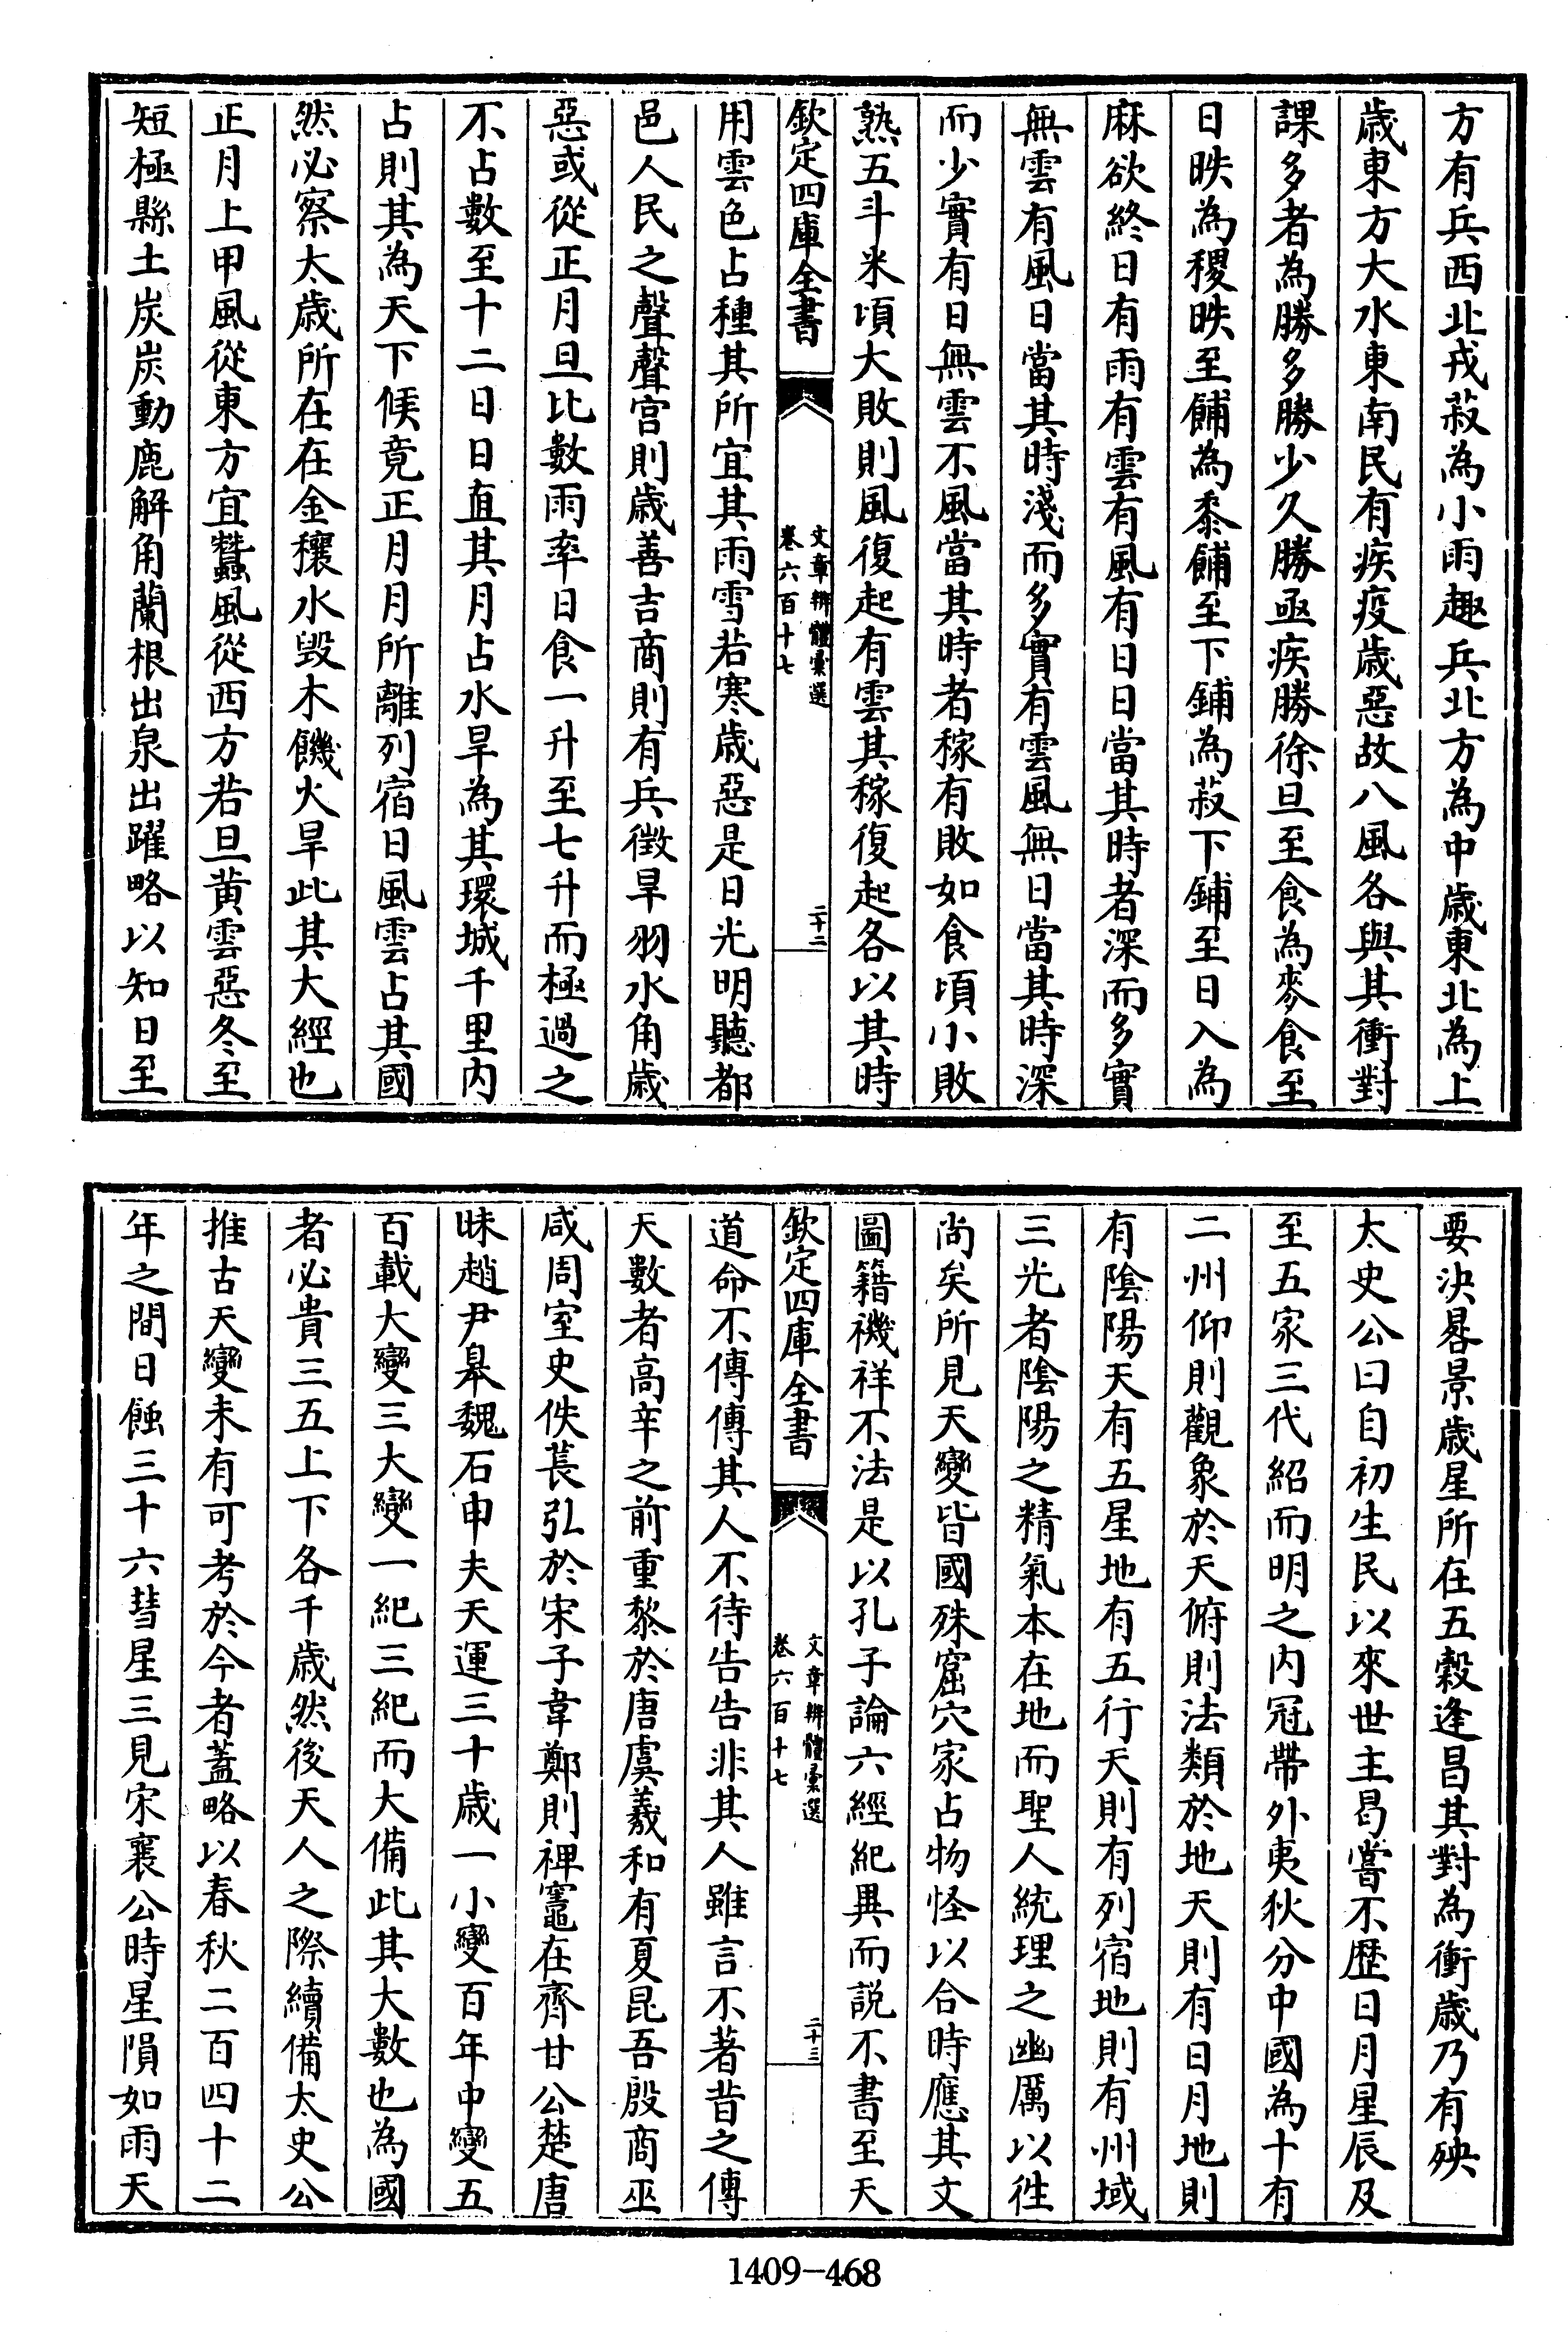 方有兵西北戎菽為小雨趣兵北方為中歲東北為上
歲東方大水東南民有疾疫歲惡故八風各與其衝對
課多者為勝多勝少久勝亟疾勝徐旦至食為麥食至
日昳為稷昳至餔為黍餔至下餔為菽下餔至日入為
麻欲終日有雨有雲有風有日日當其時者深而多實
無雲有風日當其時淺而多實有雲風無日當其時深
而少實有日無雲不風當其時者稼有敗如食頃小敗
熟五斗米頃大敗則風復起有雲其稼復起各以其時
欽定四庫全書
文章辨體彙選
卷六百十七
二十二
用雲色占種其所宜其雨雪若寒歲惡是日光明聽都
邑人民之聲聲宮則歲善吉商則有兵徵旱羽水角歲
惡或從正月旦比數雨率日食一升至七升而極過之
不占數至十二日日直其月占水旱為其環城千里內
占則其為天下候竟正月月所離列宿日風雲占其國
然必察太歲所在在金穰水毀木饑火旱此其大經也
正月上甲風從東方宜蠶風從西方若旦黃雲惡冬至
短極縣土炭炭動鹿解角蘭根出泉出躍略以知日至
要決晷景歲星所在五穀逢昌其對為衝歲乃有殃
太史公曰自初生民以來世主曷嘗不歷日月星辰及
至五家三代紹而明之內冠帶外夷狄分中國為十有
二州仰則觀象於天俯則法類於地天則有日月地則
有陰陽天有五星地有五行天則有列宿地則有州域
三光者陰陽之精氣本在地而聖人統理之幽厲以往
尚矣所見天變皆國殊窟穴家占物怪以合時應其文
圖籍禨祥不法是以孔子論六經紀異而說不書至天
欽定四庫全書
文章辨體彙選
卷六百十七
二十三
道命不傳傳其人不待告告非其人雖言不著昔之傳
天數者高辛之前重黎於唐虞羲和有夏昆吾殷商巫
咸周室史佚萇弘於宋子韋鄭則裨竈在齊甘公楚唐
昧趙尹臯魏石申夫天運三十歲一小變百年中變五
百載大變三大變一紀三紀而大備此其大數也為國
者必貴三五上下各千歲然後天人之際續備太史公
推古天變未有可考於今者蓋略以春秋二百四十二
年之間日蝕三十六彗星三見宋襄公時星隕如雨天
1409-468